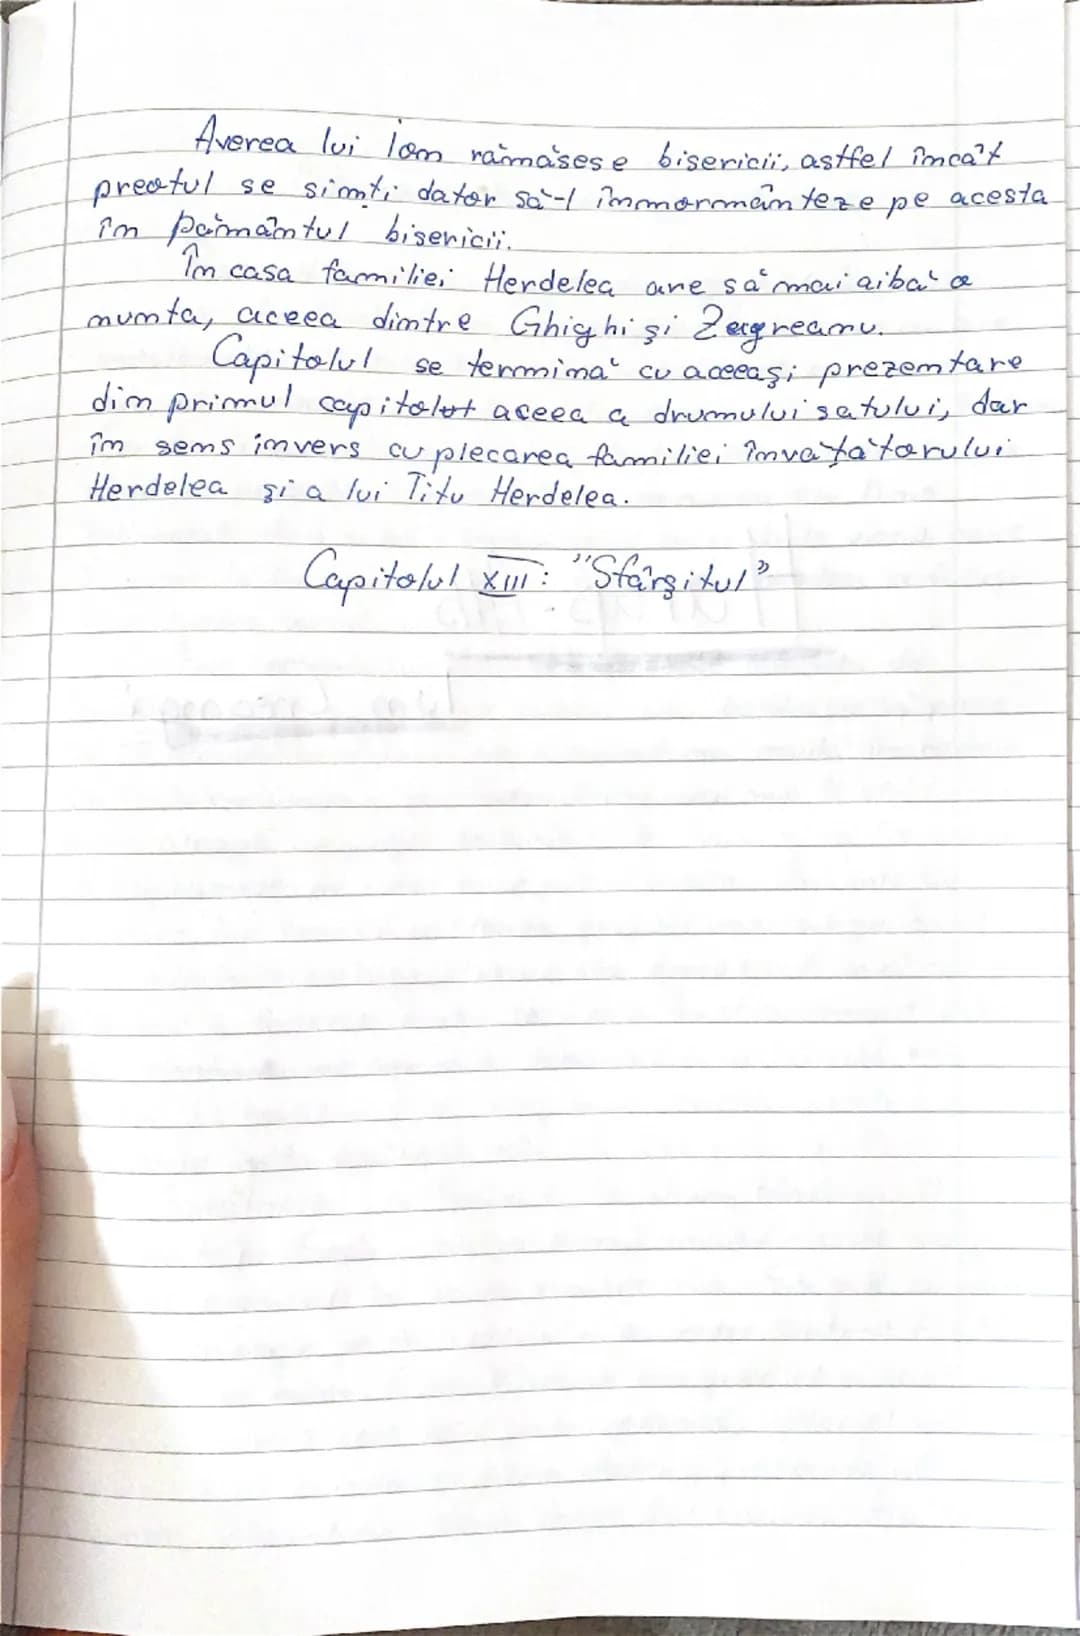 Averea lui Ion rămăsese bisericii, astfel încât
preotul se simți dator să-l înmormânteze pe acesta
în pământul bisericii.
În casa familiei Herdelea are să mai aibă o
nunta, aceea dintre Ghighi și Zegreanu.
Capitolul se termină cu aceeași prezentare
din primul capitolul aceea a drumului satului, dar
în sens invers cu plecarea familiei învățătorului
Herdelea și a lui Titu Herdelea.
Capitolul XIII: "Sfârșitul"